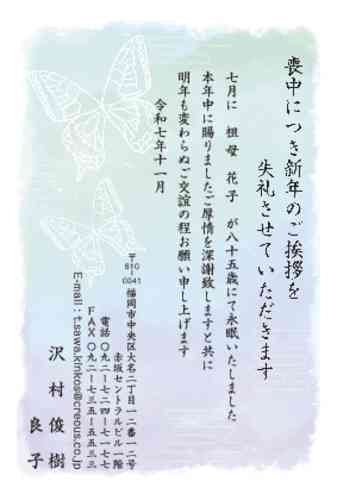 喪中につき新年のご挨拶を
失礼させていただきます
七月に 祖母 花子 が八十五歳にて永眠いたしました
本年中に賜りましたご厚情を深謝致しますと共に
明年も変わらぬご交誼の程お願い申し上げます
令和七年十一月
〒810-0041 福岡市中央区大名二丁目一二番一二号
赤坂セントラルビル一階
電話 〇九二-七二四-七一七七
FAX 〇九二-七三五-五五三三
E-mail : t.sawa.kinkos@creous.co.jp
沢村 俊樹
良子